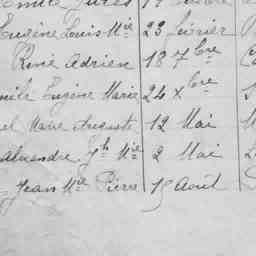 Emile Jules
Eugène Louis Mie 23 février
René Adrien 18 7bre
Emile Eugène Marie 24 Xbre
el Marie Auguste 12 Mai
Alexandre Jh Mie 2 Mai
Jean Mie Pierre 15 Août